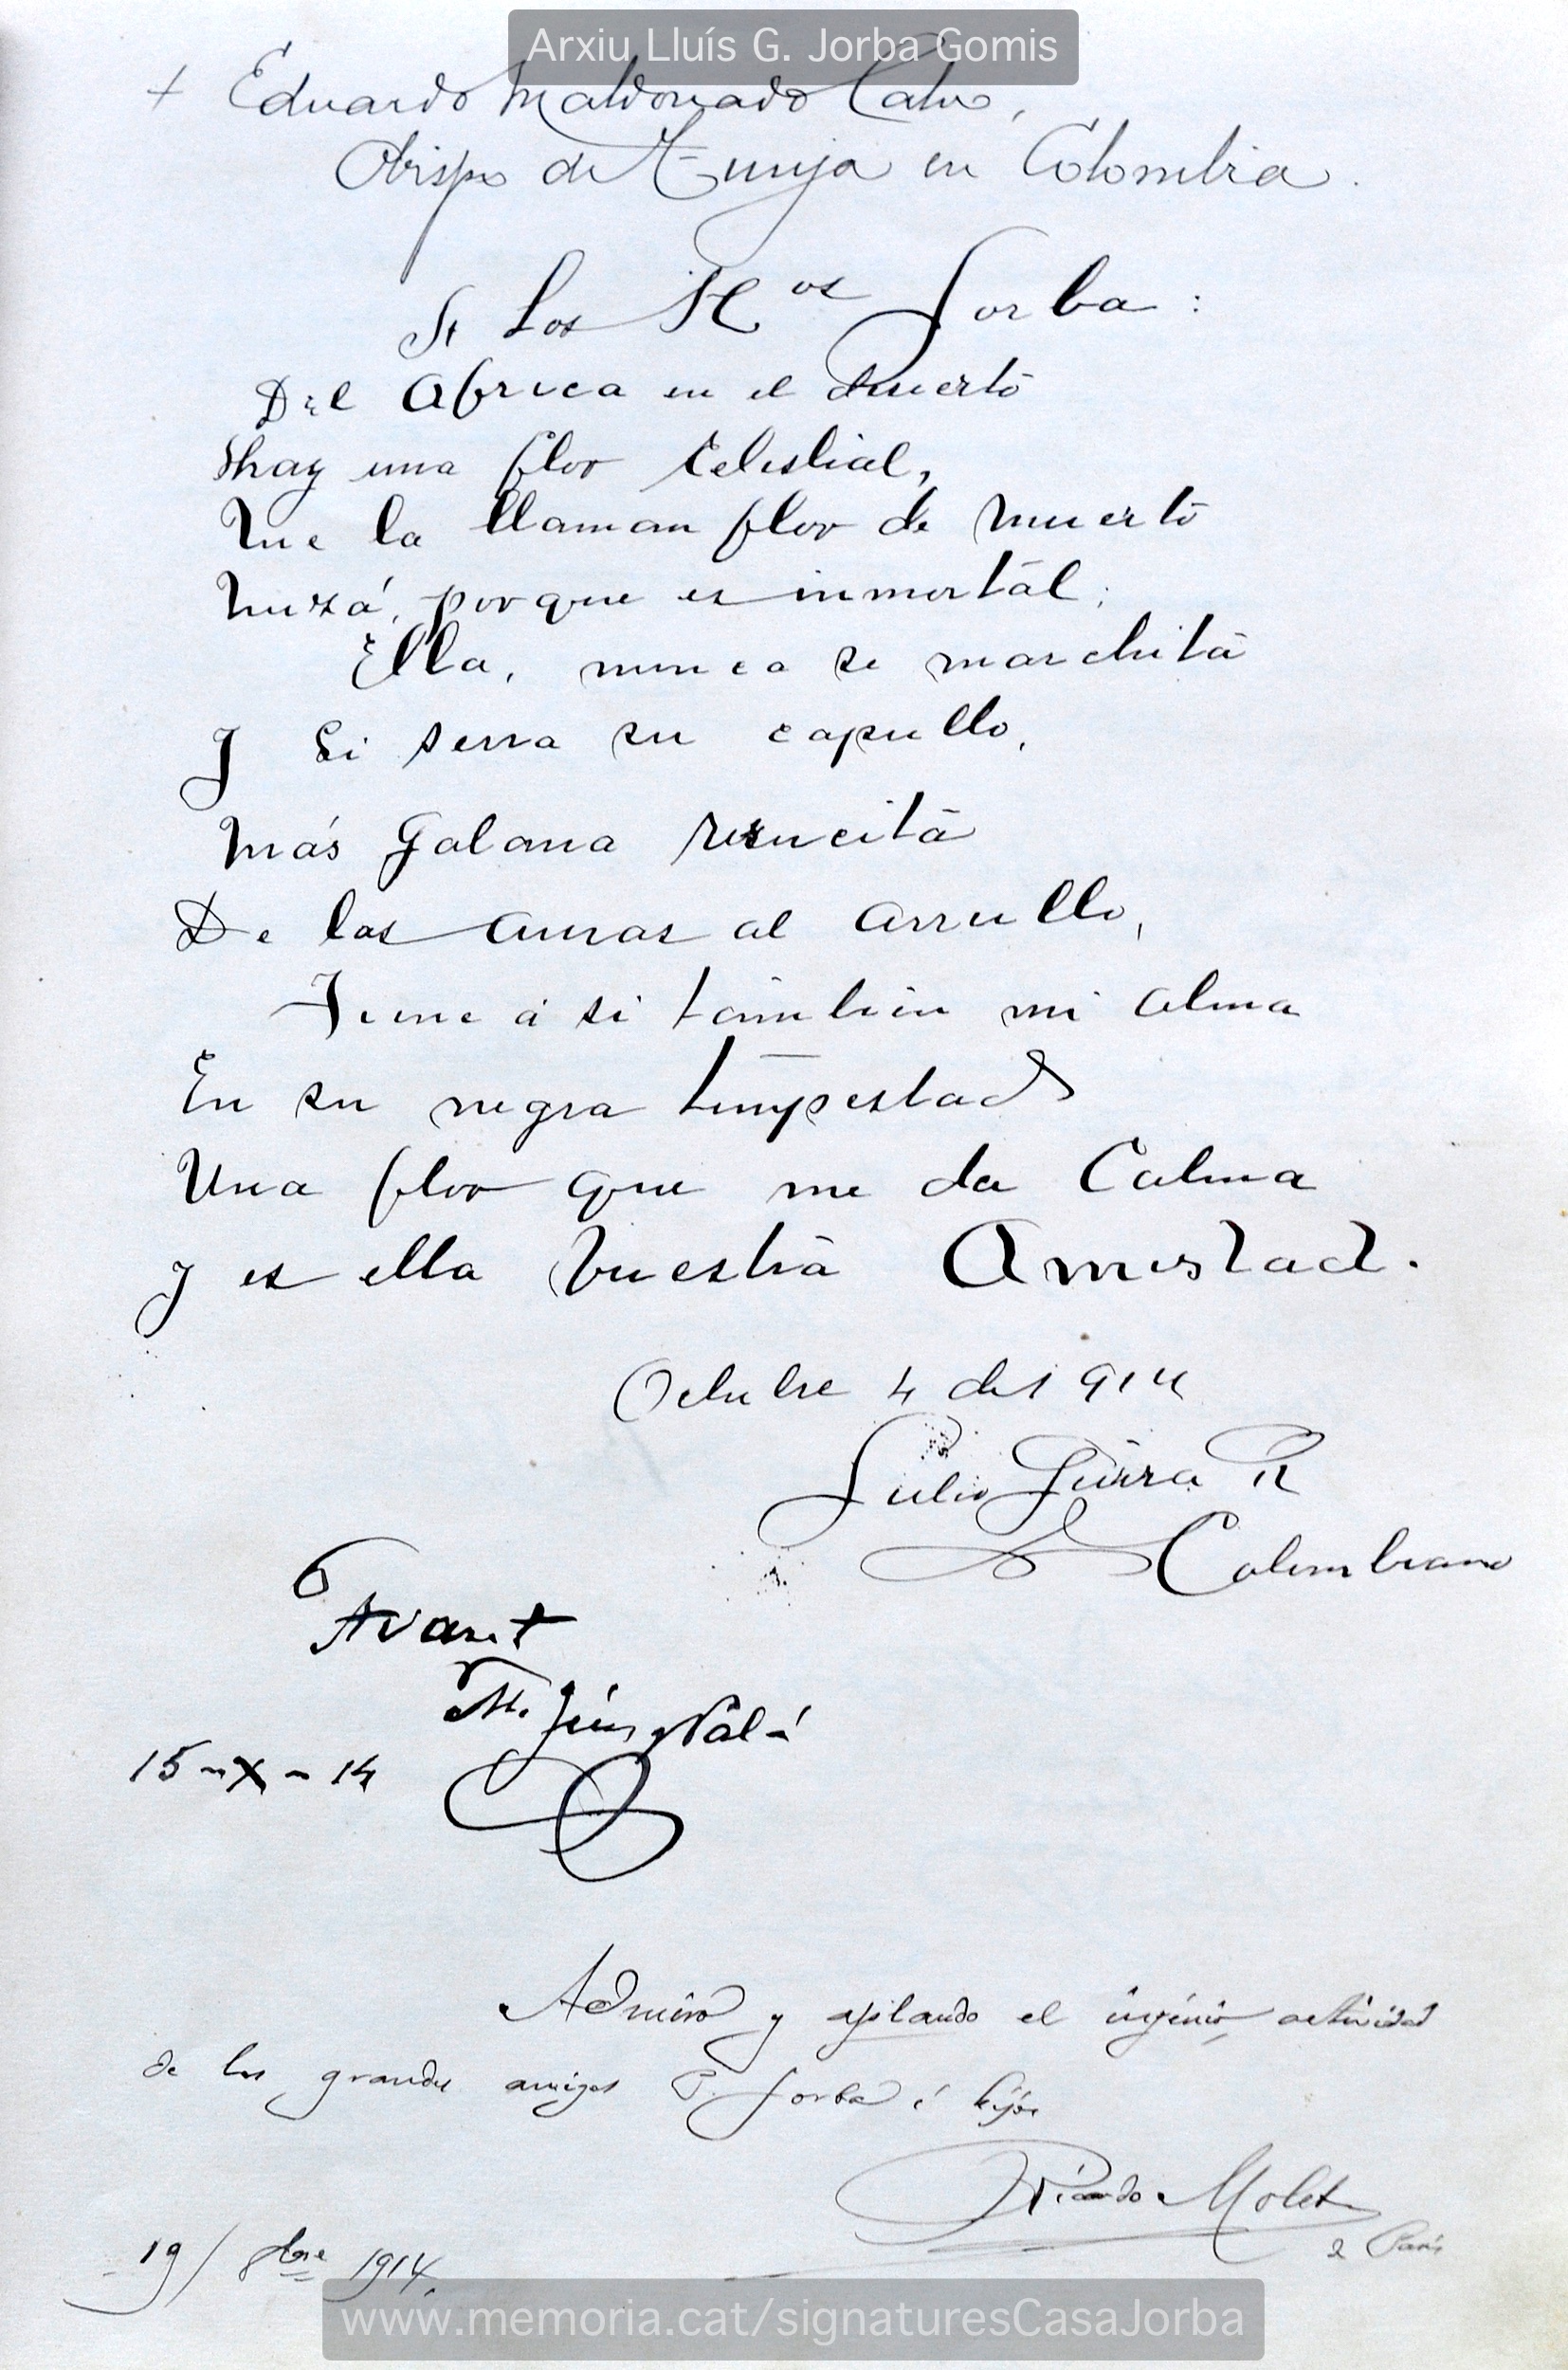 Arxiu Lluís G. Jorba Gomis
+ Eduardo Maldonado Calvo,
Obispo de Tunja en Colombia.
A Los H.os Jorba:
Del Africa en el desierto
hay una flor celestial,
Que la llaman flor de muerto
Quizá, porque es inmortal;
Ella, nunca se marchita
Y Si serra su capullo,
Más galana resucita
De las auras al arrullo,
Tiene á si tambien mi alma
En su negra tempestad
Una flor que me da Calma
Y es ella Vuestra Amistad.
Octubre 4 de 1914
Julio Guerra R
Colombiano
Avant
15-X-14
Admiro y aplaudo el ingénio, actividad
de los grandes amigos P. Jorba é hijos
Ricardo Molet
19/8bre 1914.
www.memoria.cat/signaturesCasaJorba